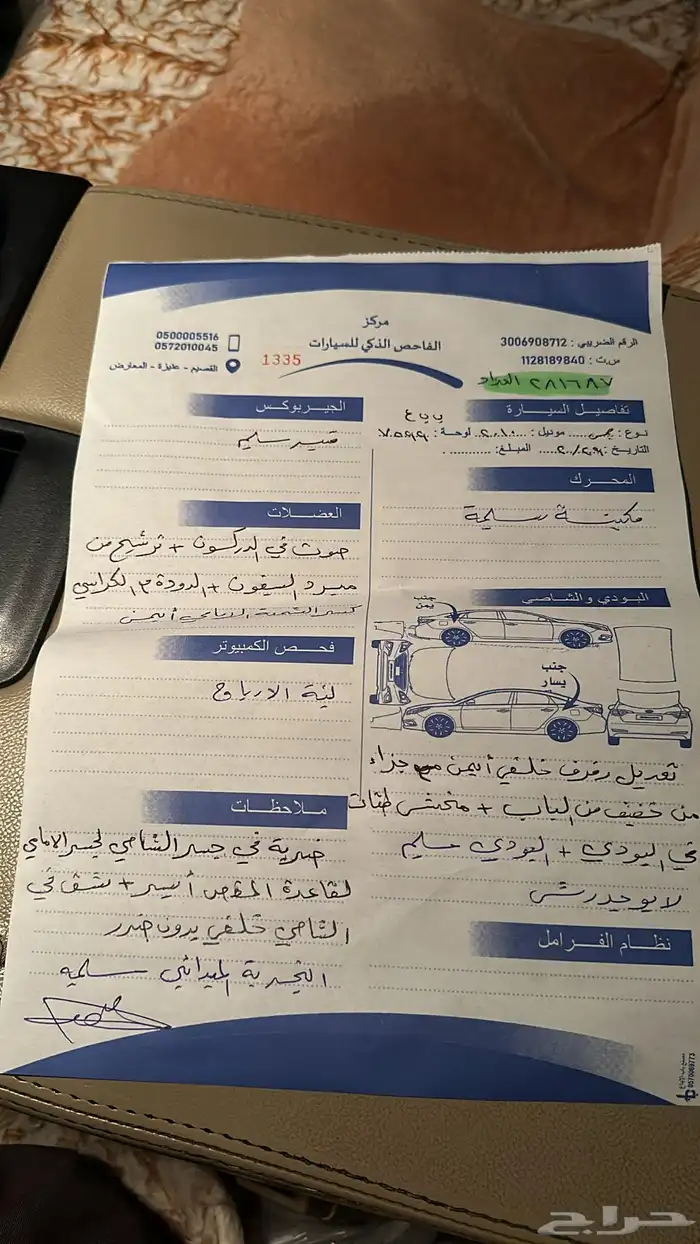 مركز
الفاحص الذكي للسيارات
الرقم الضريبي : 3006908712
س.ت : 1128189840
٢٨١٦٨٧ العداد
0500005516
0572010045
القصيم - عنيزة - المعارض
1335
تفاصيل السيارة
نوع: جمس موديل: ٢٠١٠ لوحة:
التاريخ: المبلغ:
المحرك
مكينة سليمة
البودي والشاصي
جنب يمين
جنب يسار
تعديل رفرف خلفي أيمن مع جزاء
من خفيف من الباب + مخشى طقات
في البودي + البودي سليم
لا يوجد رش
نظام الفرامل
الجيربوكس
قير سليم
العضلات
صوت في الدركسون + ترشيح من
مبرد السيفون + الدودة م الكراسي
كسر الشمعة الامامي أيمن
فحص الكمبيوتر
لبة الارباق
ملاحظات
ضربة في جسر الشاصي لجسر الامامي
لقاعدة المقص أيسر + شق في
الشاصي خلفي بدون ضرر
التجربة الميداني سليمه
0570069773
حراج